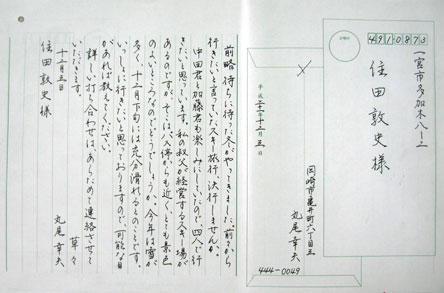 前略 待ちに待った冬がやってきました。前々から
行きたいと言っていたスキー旅行、決行しませんか。
中田君と加藤君も楽しみにしていたので、四人で行
きたいと思っています。私の叔父が経営するスキー場が
あるのですが、そこはバス停からも近くてとても景色
のよいところなのでどうでしょうか。今年は雪が
多く、十二月下旬には充分滑れるとのことです。
いっしょに行きたいと思っておりますので、可能な日
があれば教えてください。
詳しい打ち合わせは、あらためて連絡させて
いただきます。
草々
十二月五日
丸尾幸夫
住田敦史様
平成二十一年十二月五日
岡崎市亀井町六丁目五
丸尾幸夫
444-0049
4910873
一宮市多加木八ー二
住田敦史様